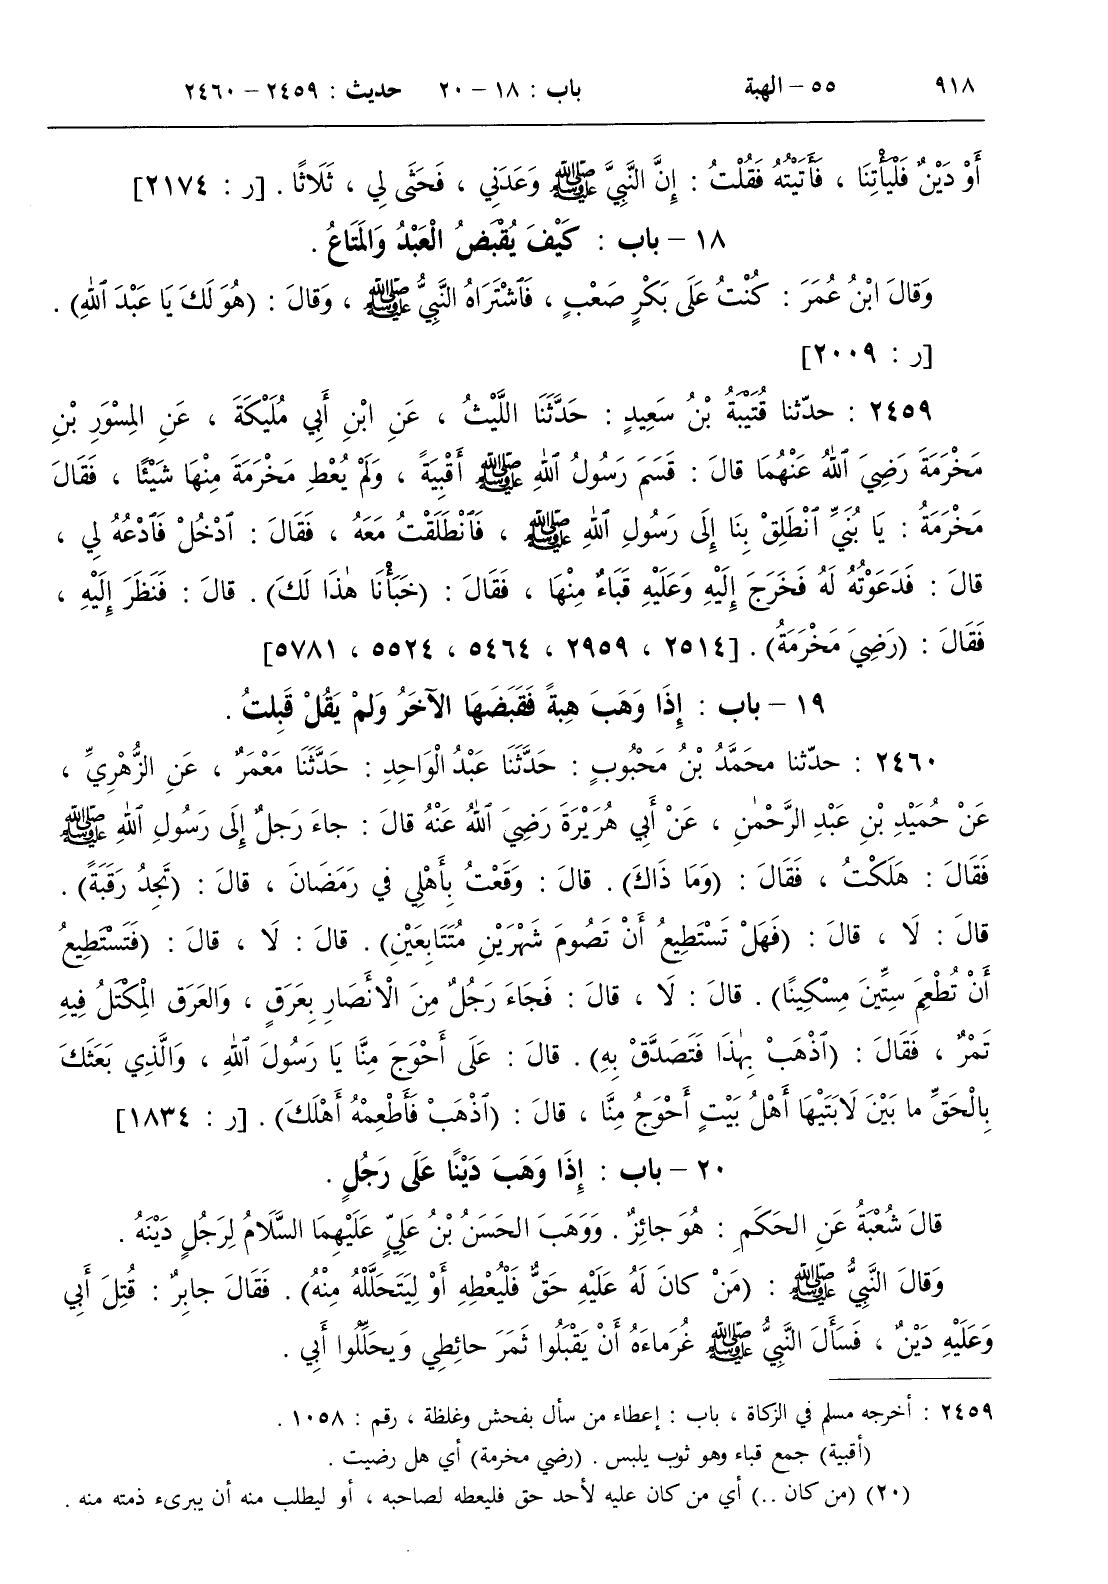 ٩١٨ ٥٥ – الهبة باب : ١٨ – ٢٠ حديث : ٢٤٥٩ – ٢٤٦٠
أَوْ دَيْنٌ فَلْيَأْتِنَا ، فَأَتَيْتُهُ فَقُلْتُ : إِنَّ النَّبِيَّ ﷺ وَعَدَنِي ، فَحَثَى لِي ، ثَلَاثًا . [ر : ٢١٧٤]
١٨ – باب : كَيْفَ يُقْبَضُ الْعَبْدُ وَالمَتَاعُ .
وَقالَ ابْنُ عُمَرَ : كُنْتُ عَلَى بَكْرٍ صَعْبٍ ، فَٱشْتَرَاهُ النَّبِيُّ ﷺ ، وَقالَ : (هُوَ لَكَ يَا عَبْدَ ٱللهِ) .
[ر : ٢٠٠٩]
٢٤٥٩ : حدّثنا قُتَيْبَةُ بْنُ سَعِيدٍ : حَدَّثَنَا اللَّيْثُ ، عَنِ ابْنِ أَبِي مُلَيْكَةَ ، عَنِ الْمِسْوَرِ بْنِ
مَخْرَمَةَ رَضِيَ ٱللهُ عَنْهُمَا قالَ : قَسَمَ رَسُولُ ٱللهِ ﷺ أَقْبِيَةً ، وَلَمْ يُعْطِ مَخْرَمَةَ مِنْهَا شَيْئًا ، فَقَالَ
مَخْرَمَةُ : يَا بُنَيِّ ٱنْطَلِقْ بِنَا إِلَى رَسُولِ ٱللهِ ﷺ ، فَٱنْطَلَقْتُ مَعَهُ ، فَقَالَ : ٱدْخُلْ فَٱدْعُهُ لِي ،
قالَ : فَدَعَوْتُهُ لَهُ فَخَرَجَ إِلَيْهِ وَعَلَيْهِ قَبَاءٌ مِنْهَا ، فَقَالَ : (خَبَأْنَا هٰذَا لَكَ) . قالَ : فَنَظَرَ إِلَيْهِ ،
فَقَالَ : (رَضِيَ مَخْرَمَةُ) . [٢٥١٤ ، ٢٩٥٩ ، ٥٤٦٤ ، ٥٥٢٤ ، ٥٧٨١]
١٩ – باب : إِذَا وَهَبَ هِبَةً فَقَبَضَهَا الآخَرُ وَلَمْ يَقُلْ قَبِلتُ .
٢٤٦٠ : حدّثنا محَمَّدُ بْنُ مَحْبُوبٍ : حَدَّثَنَا عَبْدُ الْوَاحِدِ : حَدَّثَنَا مَعْمَرٌ ، عَنِ الزُّهْرِيِّ ،
عَنْ حُمَيْدِ بْنِ عَبْدِ الرَّحْمٰنِ ، عَنْ أَبِي هُرَيْرَةَ رَضِيَ ٱللهُ عَنْهُ قالَ : جاءَ رَجلٌ إِلَى رَسُولِ ٱللهِ ﷺ
فَقَالَ : هَلَكْتُ ، فَقَالَ : (وَمَا ذَاكَ) . قالَ : وَقَعْتُ بِأَهْلِي فِي رَمَضَانَ ، قالَ : (تَجِدُ رَقَبَةً) .
قالَ : لَا ، قالَ : (فَهَلْ تَسْتَطِيعُ أَنْ تَصُومَ شَهْرَيْنِ مُتَتَابِعَيْنِ) . قالَ : لَا ، قالَ : (فَتَسْتَطِيعُ
أَنْ تُطْعِمَ سِتِّينَ مِسْكِينًا) . قالَ : لَا ، قالَ : فَجَاءَ رَجُلٌ مِنَ الْأَنْصَارِ بِعَرَقٍ ، وَالعَرَق الْمِكْتَلُ فِيهِ
تَمْرٌ ، فَقَالَ : (ٱذْهَبْ بِهٰذَا فَتَصَدَّقْ بِهِ) . قالَ : عَلَى أَحْوَجَ مِنَّا يَا رَسُولَ ٱللهِ ، وَالَّذِي بَعَثَكَ
بِالْحَقِّ ما بَيْنَ لَابَتَيْهَا أَهْلُ بَيْتٍ أَحْوَجُ مِنَّا ، قالَ : (ٱذْهَبْ فَأَطْعِمْهُ أَهْلَكَ) . [ر : ١٨٣٤]
٢٠ – باب : إِذَا وَهَبَ دَيْنًا عَلَى رَجُلٍ .
قالَ شُعْبَةُ عَنِ الحَكَمِ : هُوَ جائِزٌ . وَوَهَبَ الحَسَنُ بْنُ عَلِيٍّ عَلَيْهِمَا السَّلَامُ لِرَجُلٍ دَيْنَهُ .
وَقالَ النَّبِيُّ ﷺ : (مَنْ كانَ لَهُ عَلَيْهِ حَقٌّ فَلْيُعْطِهِ أَوْ لِيَتَحَلَّلْهُ مِنْهُ) . فَقَالَ جابِرٌ : قُتِلَ أَبِي
وَعَلَيْهِ دَيْنٌ ، فَسَأَلَ النَّبِيُّ ﷺ غُرَماءَهُ أَنْ يَقْبَلُوا ثَمَرَ حائِطِي وَيحَلِّلُوا أَبِي .
٢٤٥٩ : أخرجه مسلم في الزكاة ، باب : إعطاء من سأل بفحش وغلظة ، رقم : ١٠٥٨ .
(أقبية) جمع قباء وهو ثوب يلبس . (رضي مخرمة) أي هل رضيت .
(٢٠) (من كان ..) أي من كان عليه لأحد حق فليعطه لصاحبه ، أو ليطلب منه أن يبرىء ذمته منه .